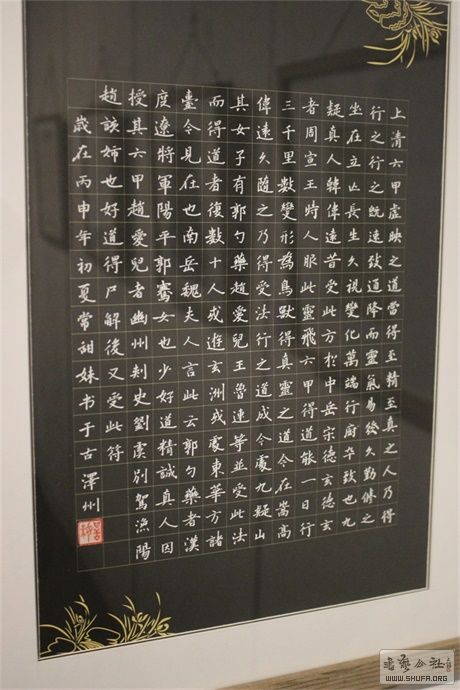 上清六甲虛映之道當得至精至真之人乃得
行之行之既速致道降而靈氣易後久勤修之
坐在立亡長生久視變化萬端行廚卒致也九
疑真人韓偉遠昔受此方於中岳宋德玄德玄
者周宣王時人服此靈飛六甲得道能一日行
三千里數變形為鳥獸得真靈之道今在嵩高
偉遠久隨之乃得受法行之道成今處九疑山
其女子有郭勺藥趙愛兒王魯連等並受此法
而得道者復數十人或遊玄洲或處東華方諸
臺今見在也南岳魏夫人言此云郭勺藥者漢
度遼將軍陽平郭騫女也少好道精誠真人因
授其六甲趙愛兒者幽州刺史劉虞別駕漁陽
趙該姊也好道得尸解後又受此符
歲在丙申年初夏常甜妹书于古澤州
WWW.SHUFA.ORG